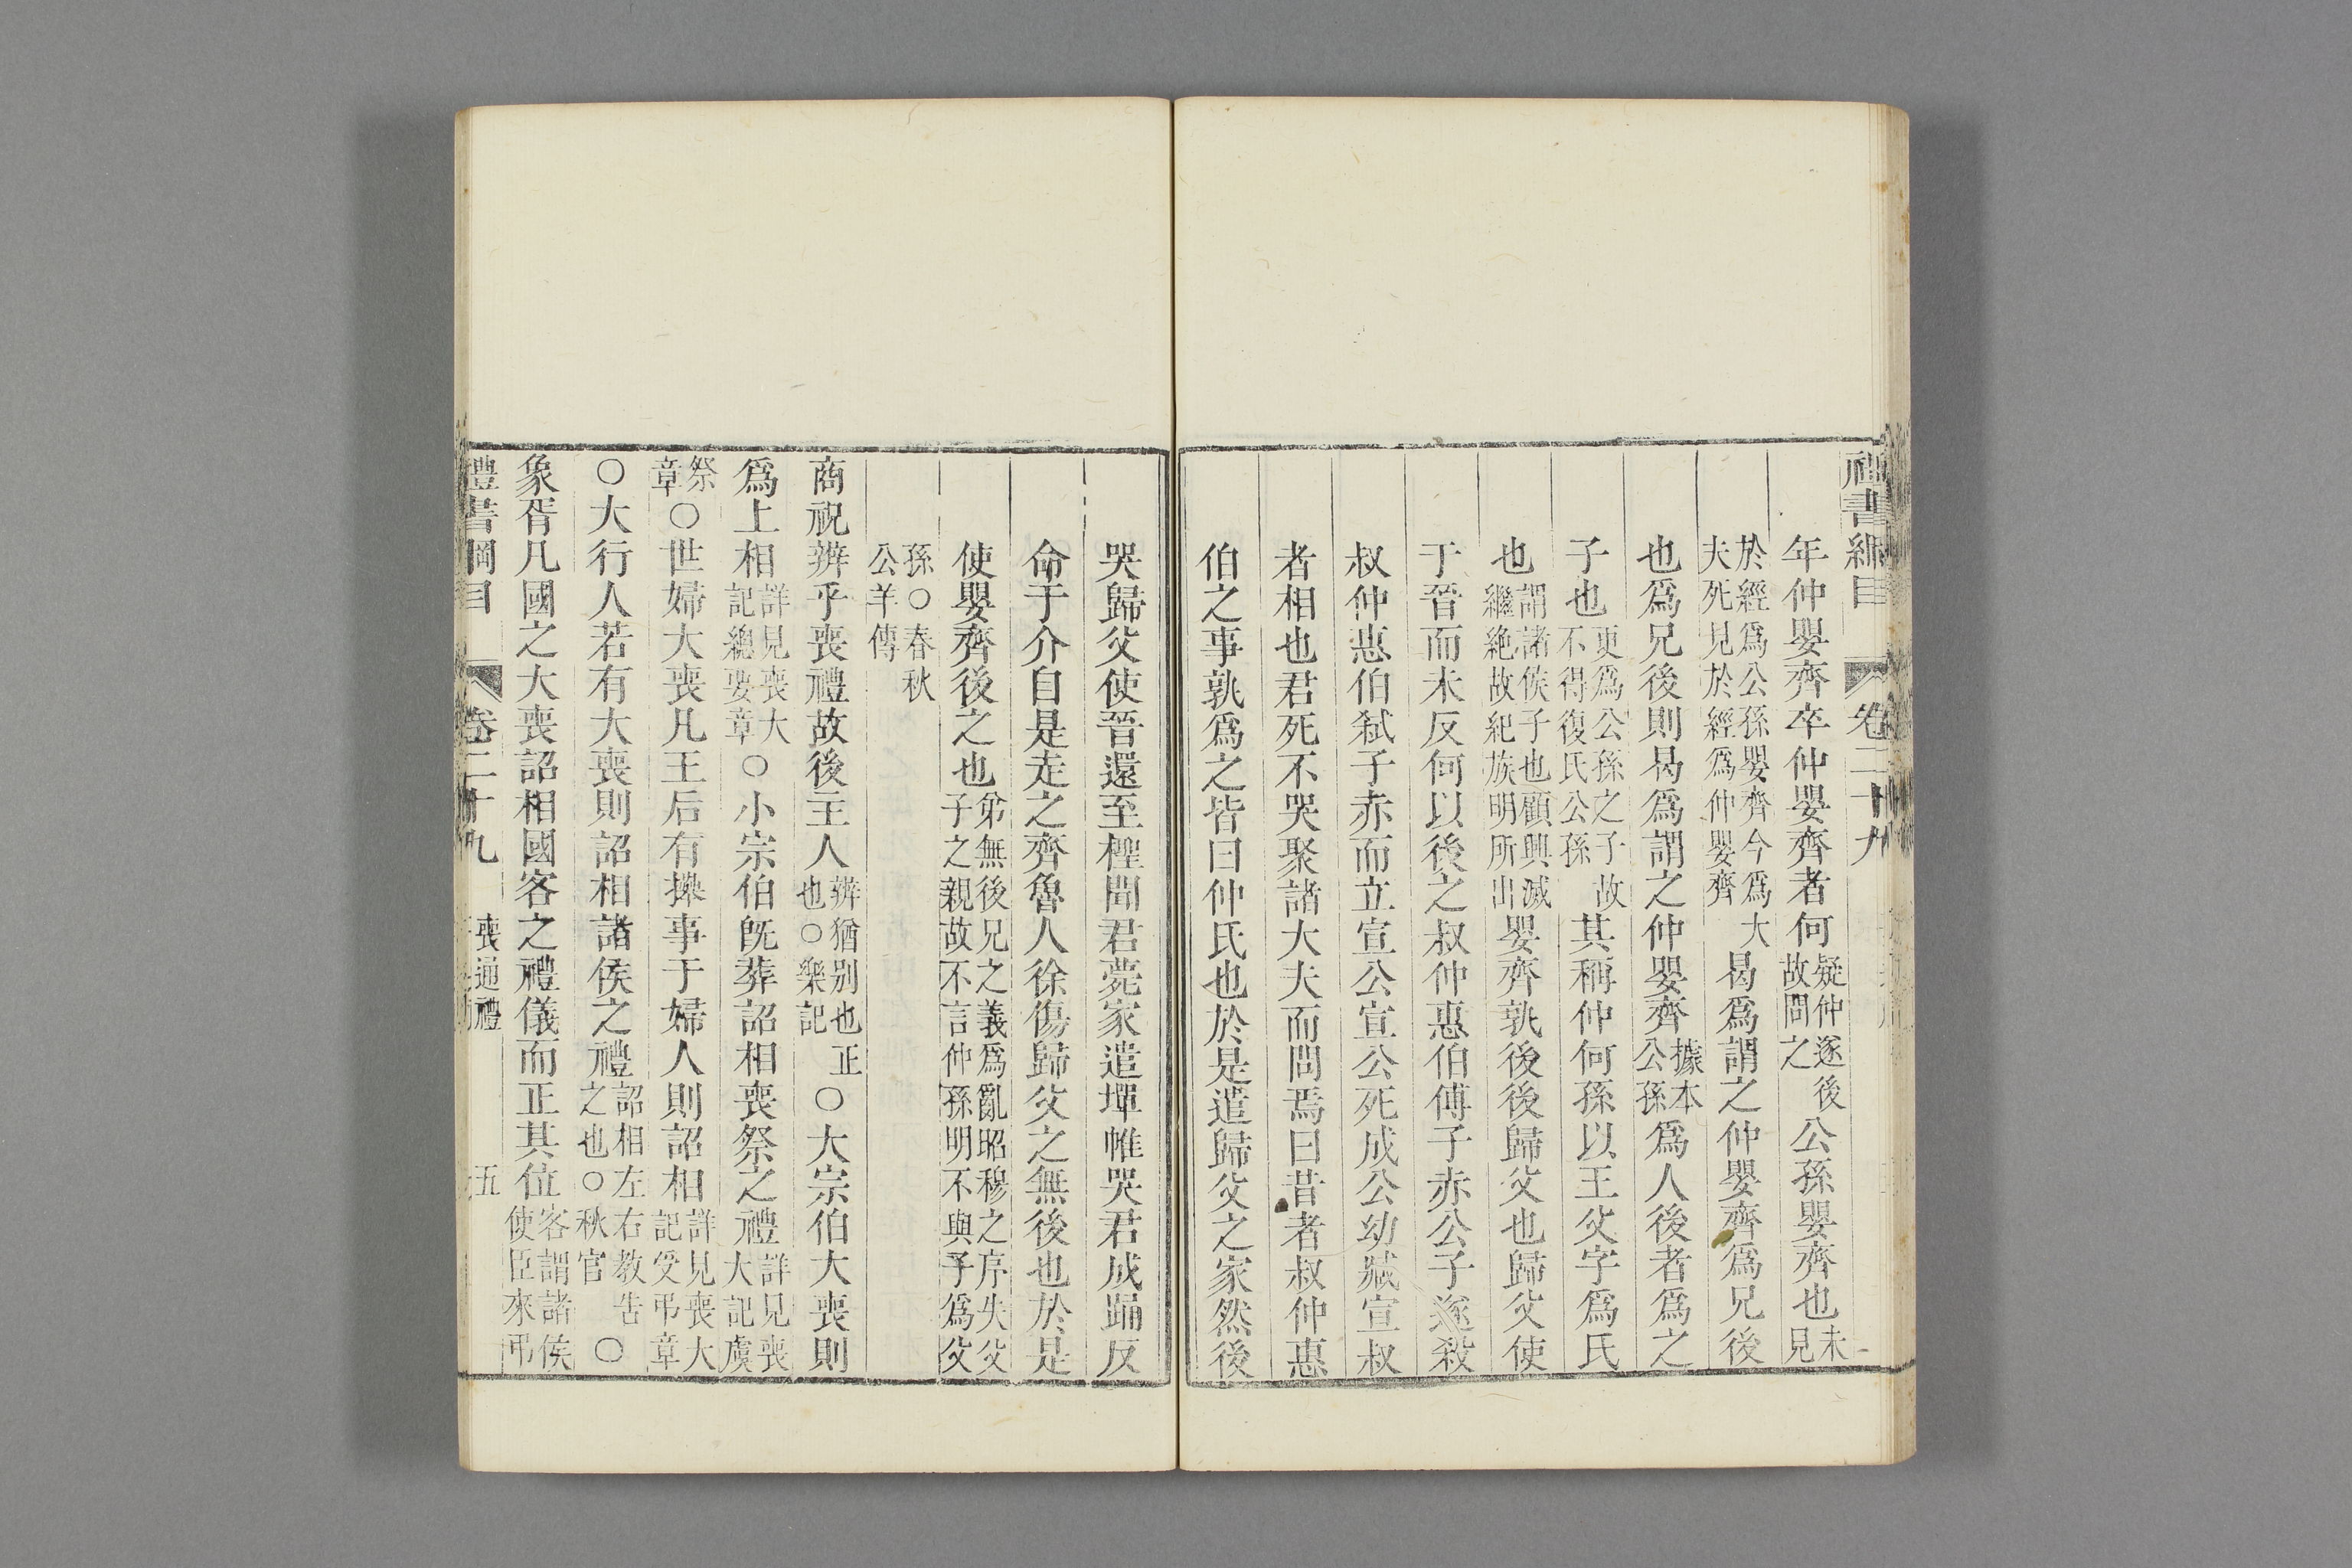 禮書綱目 卷二十九
年仲嬰齊卒仲嬰齊者何疑仲遂後故問之公孫嬰齊也未見
於經爲公孫嬰齊今爲大夫死見於經爲仲嬰齊曷爲謂之仲嬰齊爲兄後
也爲兄後則曷爲謂之仲嬰齊據本公孫爲人後者爲之
子也更爲公孫之子故不得復氏公孫其稱仲何孫以王父字爲氏
也謂諸侯子也顧興滅繼絶故紀族明所出嬰齊孰後後歸父也歸父使
于晉而未反何以後之叔仲惠伯傅子赤公子遂殺
叔仲惠伯弑子赤而立宣公宣公死成公幼臧宣叔
者相也君死不哭聚諸大夫而問焉曰昔者叔仲惠
伯之事孰爲之皆曰仲氏也於是遣歸父之家然後
哭歸父使晉還至檉聞君薨家遣墠帷哭君成踊反
命于介自是走之齊魯人徐傷歸父之無後也於是
使嬰齊後之也弟無後兄之義爲亂昭穆之序失父子之親故不言仲孫明不與子爲父
孫○春秋公羊傳
商祝辨乎喪禮故後主人辨猶別也正也○樂記○大宗伯大喪則
爲上相詳見喪大記總要章○小宗伯旣葬詔相喪祭之禮詳見喪大記虞
祭章○世婦大喪凡王后有㩴事于婦人則詔相詳見喪大記受弔章
○大行人若有大喪則詔相諸侯之禮詔相左右教告之也○秋官○
象胥凡國之大喪詔相國客之禮儀而正其位客謂諸侯使臣來弔
禮書綱目 卷二十九 喪通禮 五